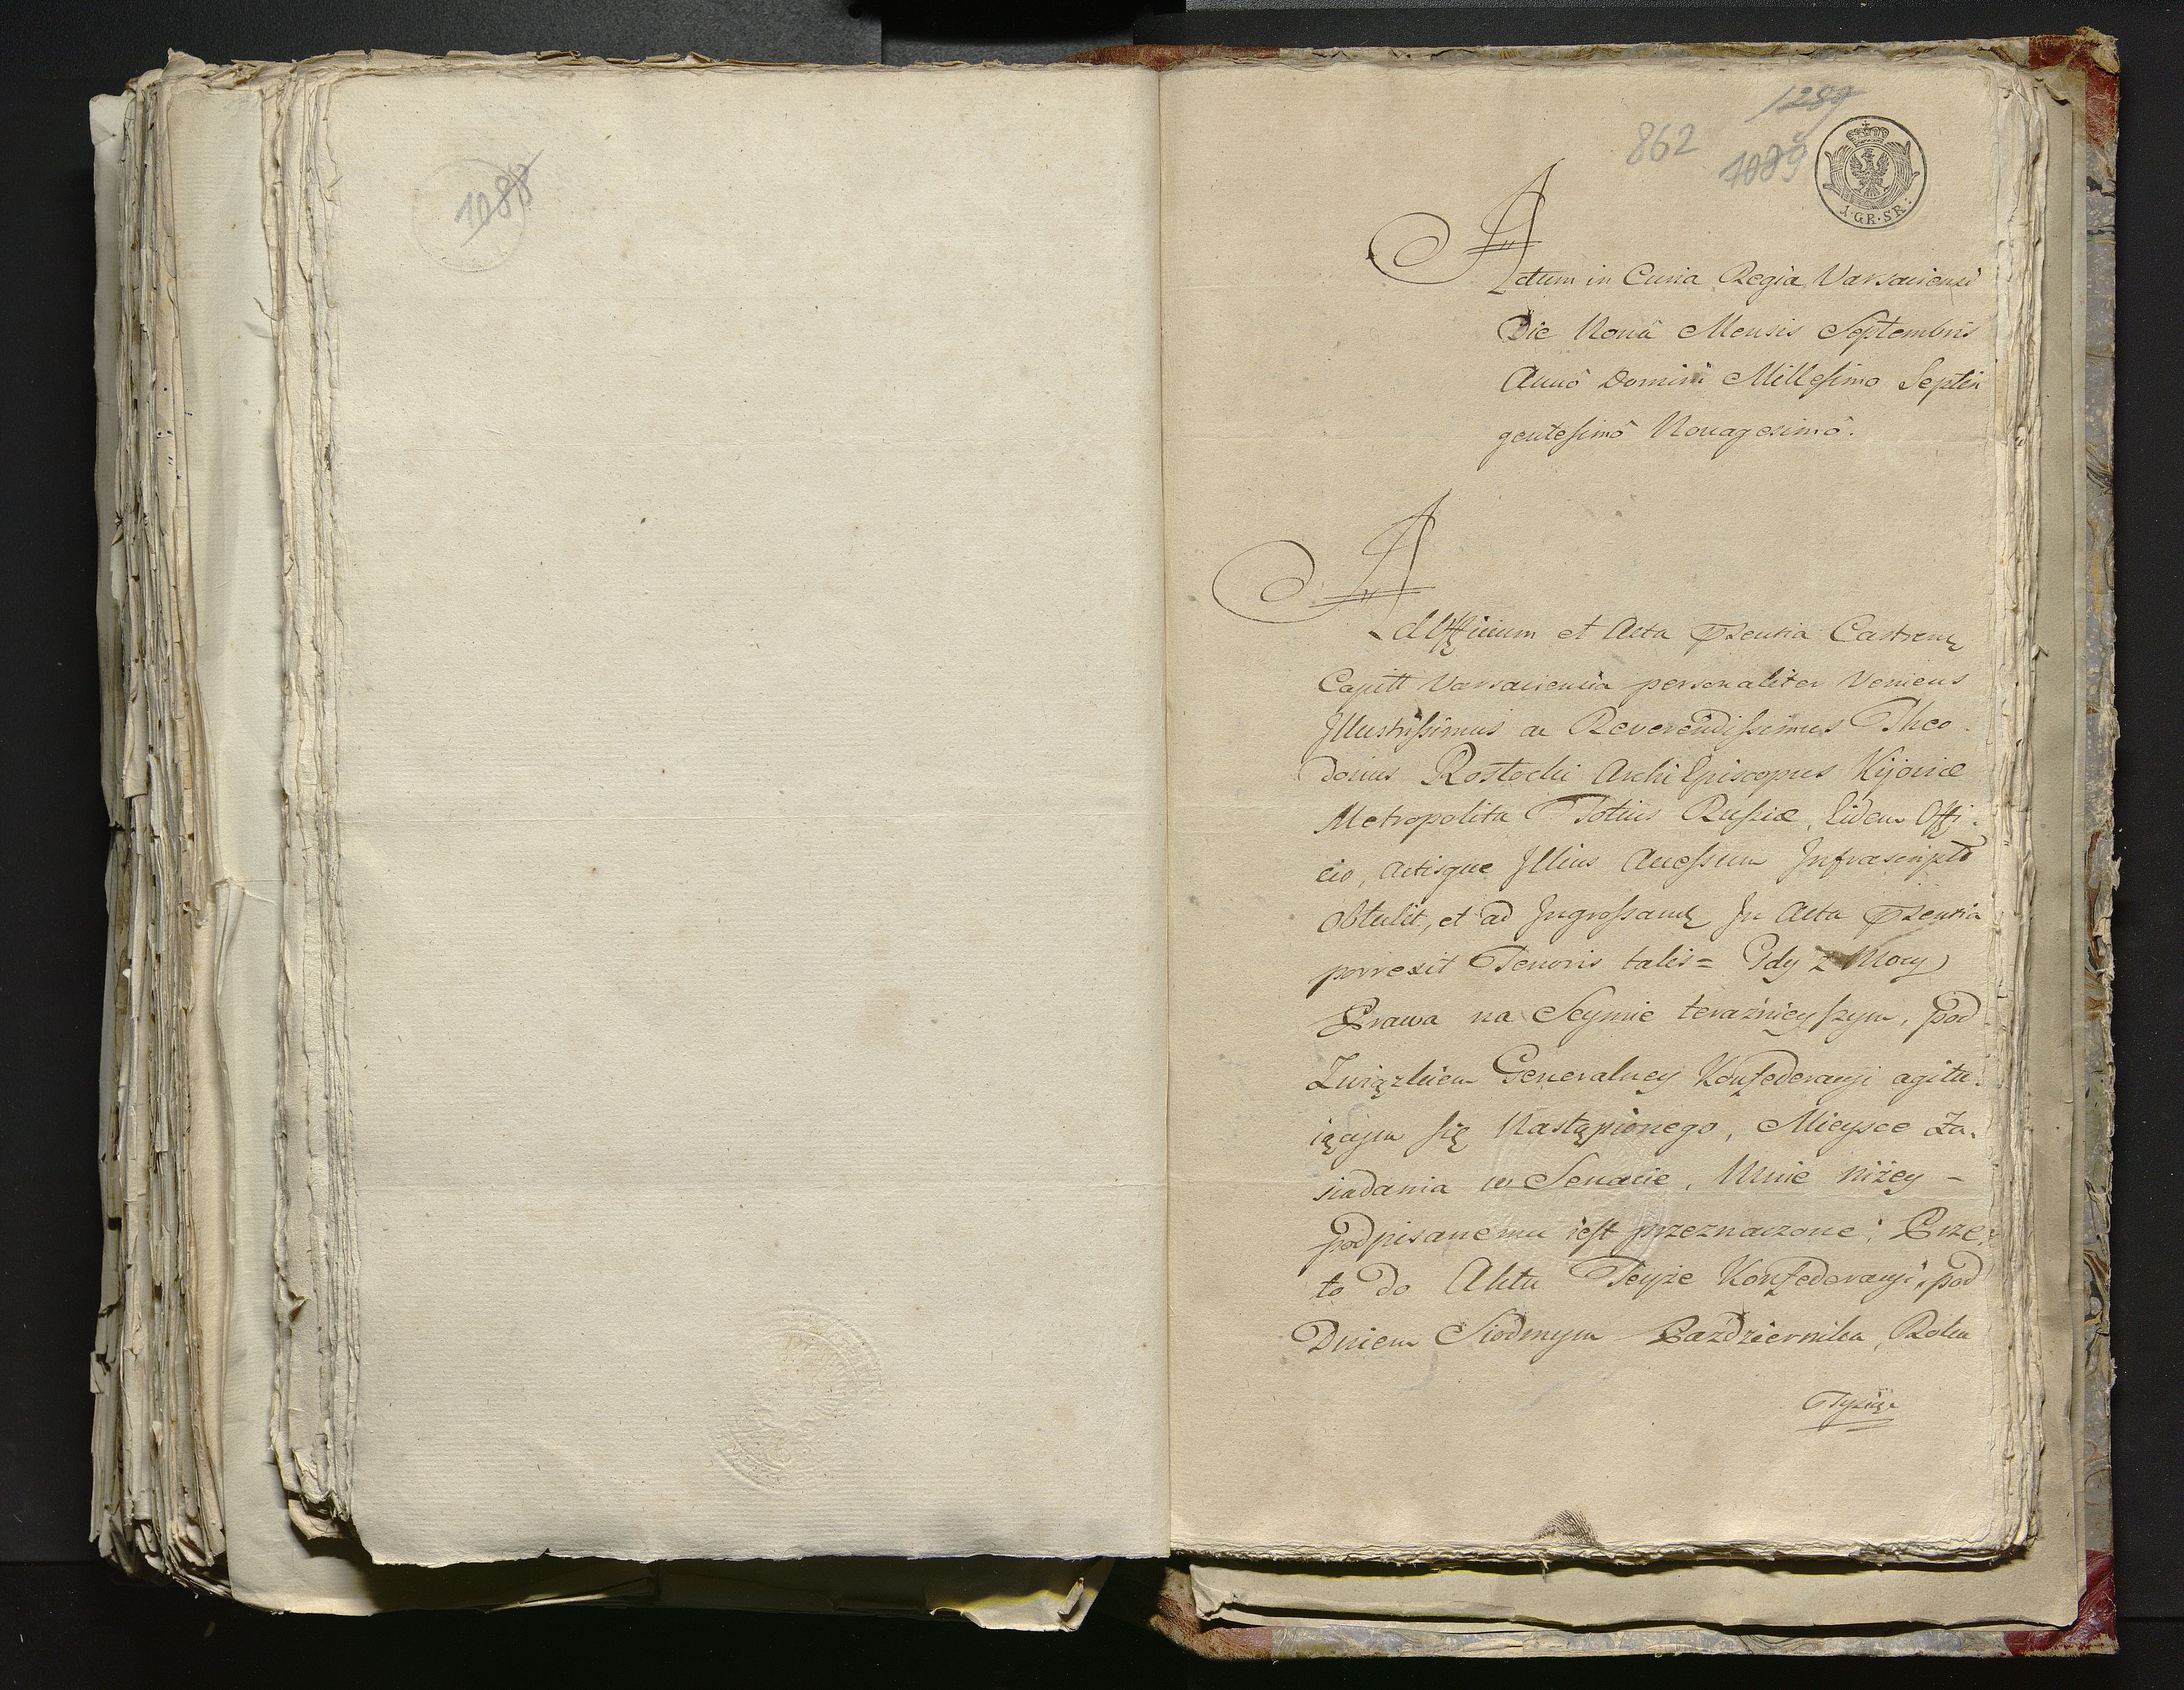 1088
1289
862
1089
1·GR·SR:
Actum in Curia Regia Varsaviensi
Die Nonâ Mensis Septembris
Annô Domini Millesimo Septin
gentesimô Nonagesimô.
Ad Officium et Acta Pñsentia Castren
Capitt Varsaviensia personaliter Veniens
Jllustrissimus ac Reverendissimus Theo-
dosius Rostocki Archi Episcopus Kijoviæ
Metropolita Totius Russiæ, Eidem Offi-
cio, Actisque Jllius Accessum Jnfrascriptô
Obtulit, et ad Jngrossand Jn Acta Pñsentia
porrexit Tenoris talis = Gdy z Mocy
Prawa na Seymie teraźnieyszym, pod
Związkiem Generalney Konfederacyi agitu-
iącym się Nastąpionego, Mieysce Za-
siadania w Senacie, Mnie niżey -
podpisanemu iest przeznaczone; Prze-
to do Aktu Teyże Konfederacyi, pod
Dniem Siodmym Października, Roku
Tysiąc